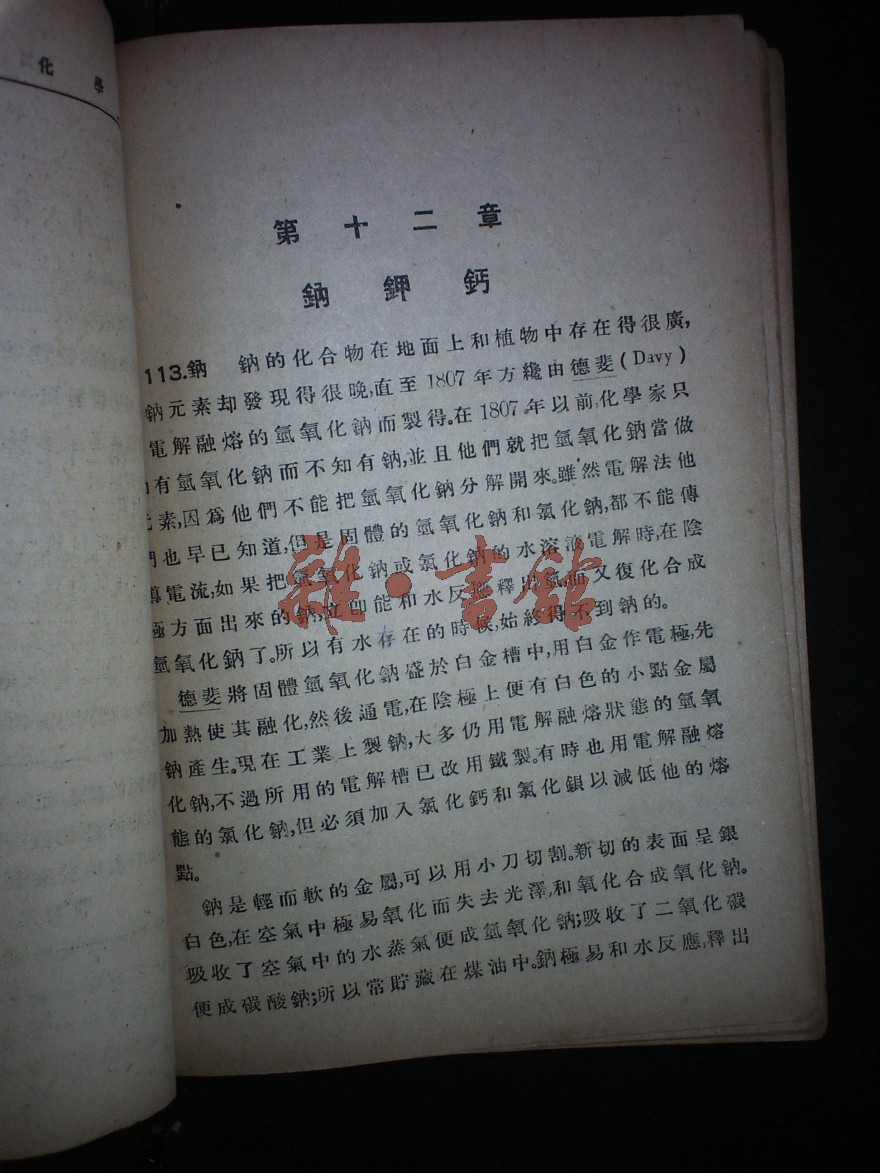 化學
第十二章
鈉鉀鈣
113.鈉 鈉的化合物在地面上和植物中存在得很廣,
鈉元素却發現得很晚,直至1807年方纔由德斐(Davy)
電解融熔的氫氧化鈉而製得。在1807年以前,化學家只
有氫氧化鈉而不知有鈉,並且他們就把氫氧化鈉當做
元素,因爲他們不能把氫氧化鈉分解開來。雖然電解法他
們也早已知道,但是固體的氫氧化鈉和氯化鈉,都不能傳
導電流,如果把氫氧化鈉或氯化鈉的水溶液電解時,在陰
極方面出來的鈉,立卽能和水反應釋出氫,而又復化合成
氫氧化鈉了。所以有水存在的時候,始終得不到鈉的。
德斐將固體氫氧化鈉盛於白金槽中,用白金作電極,先
加熱使其融化,然後通電,在陰極上便有白色的小點金屬
鈉產生。現在工業上製鈉,大多仍用電解融熔狀態的氫氧
化鈉,不過所用的電解槽已改用鐵製。有時也用電解融熔
態的氯化鈉,但必須加入氯化鈣和氯化鋇以減低他的熔
點。
鈉是輕而軟的金屬,可以用小刀切割。新切的表面呈銀
白色,在空氣中極易氧化而失去光澤,和氧化合成氧化鈉。
吸收了空氣中的水蒸氣便成氫氧化鈉;吸收了二氧化碳
便成碳酸鈉;所以常貯藏在煤油中。鈉極易和水反應,釋出
雜·書館